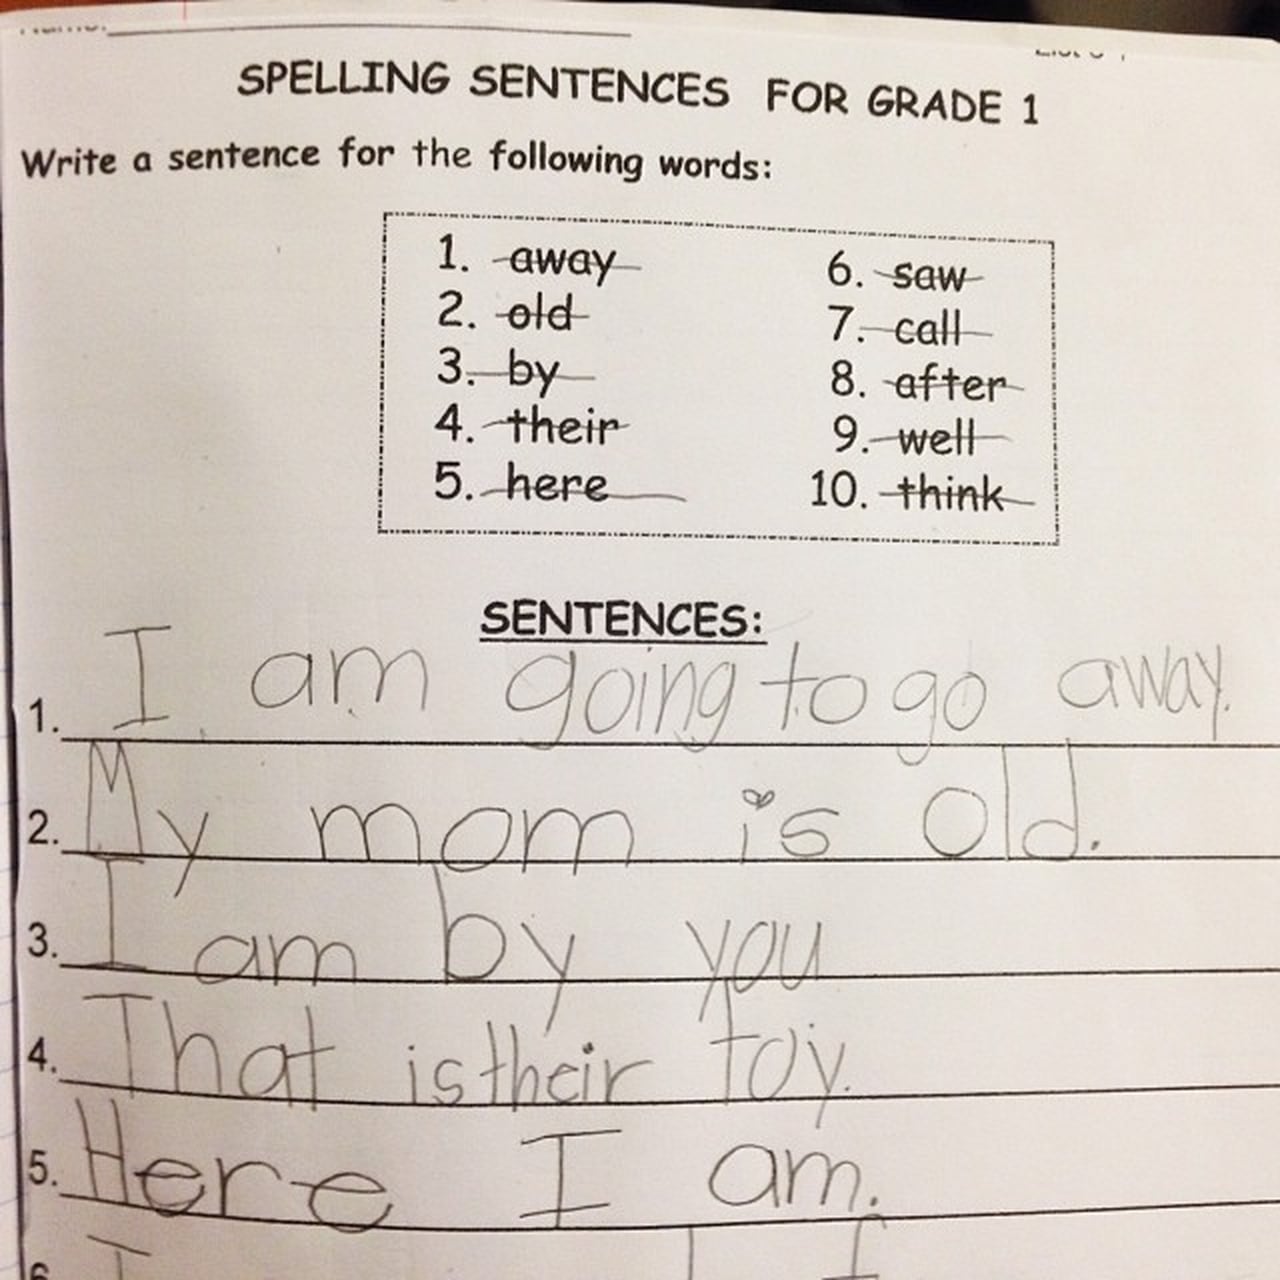 SPELLING SENTENCES FOR GRADE 1
Write a sentence for the following words:
1. away 6. saw
2. old 7. call
3. by 8. after
4. their 9. well
5. here 10. think
SENTENCES:
1. I am going to go away.
2. My mom is old.
3. I am by you
4. That is their toy.
5. Here I am.
6. I